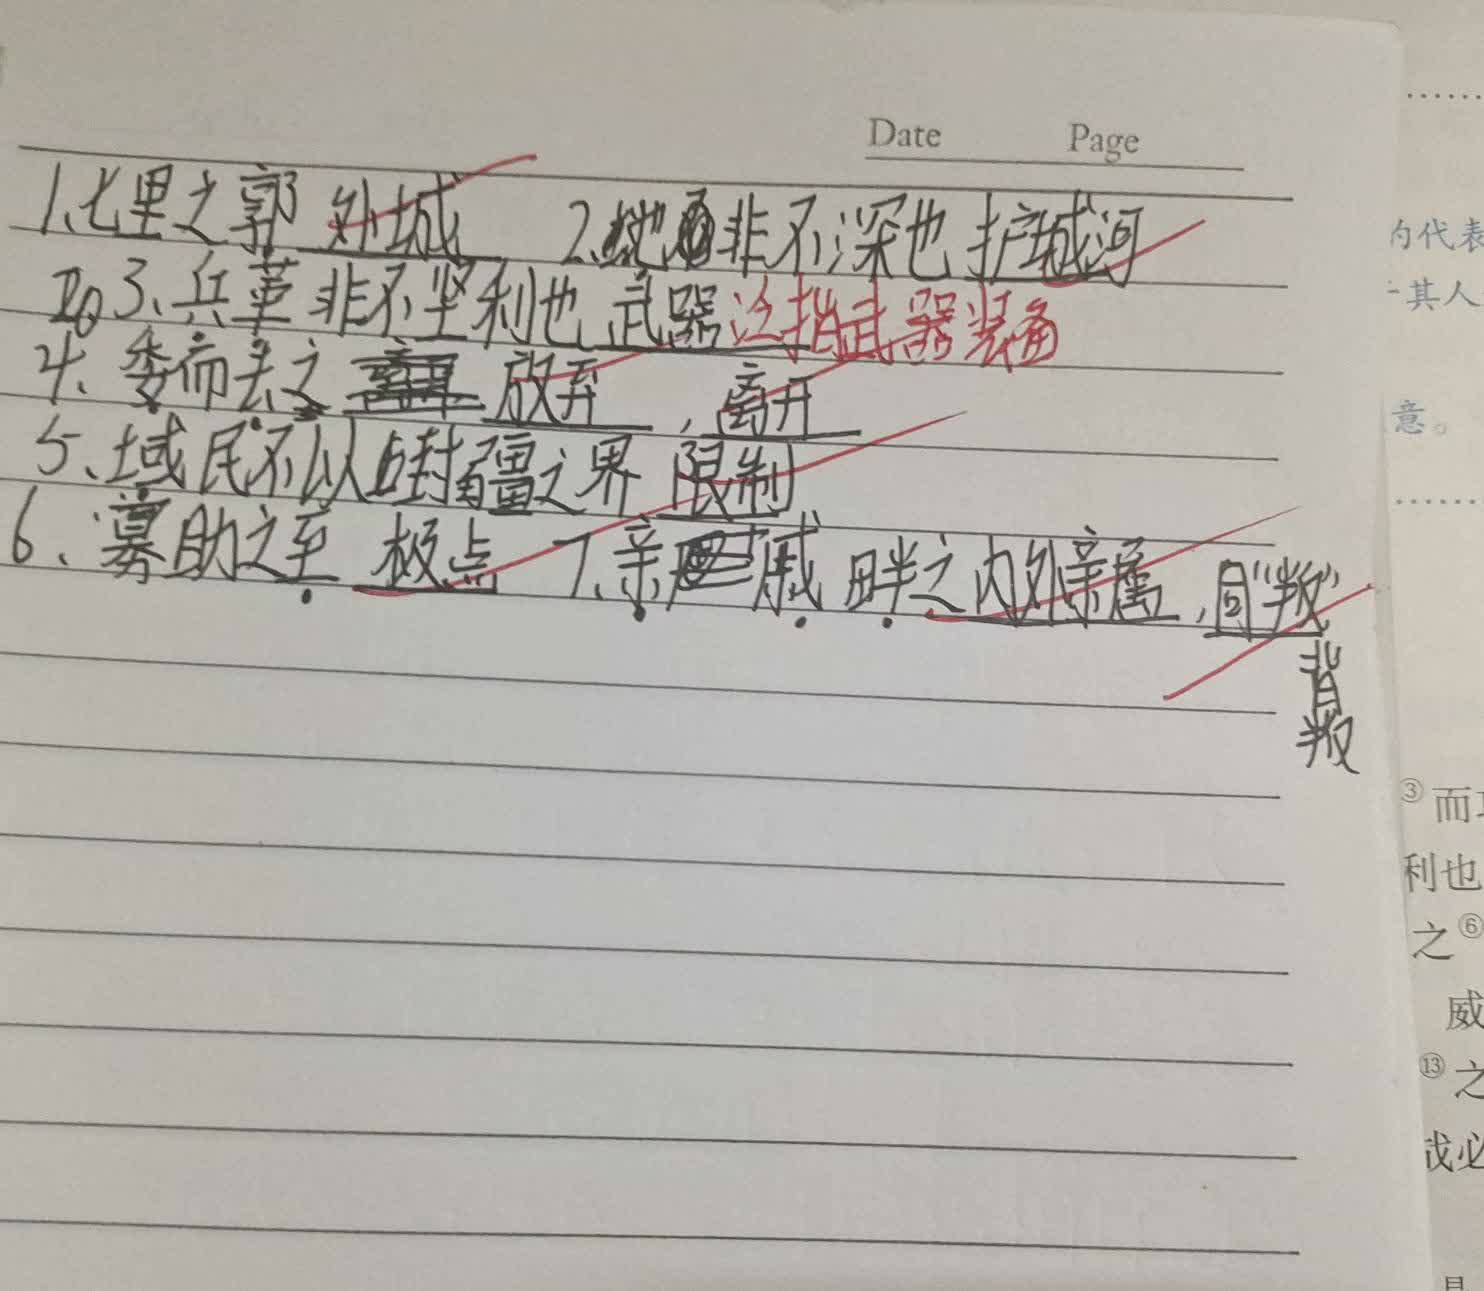 Date Page
1.七里之郭 外城 2.地非不深也 护城河
3、兵革非不坚利也 武器 泛指武器装备
4、委而去之 放弃,离开
5、域民不以封疆之界 限制
6、寡助之至 极点 7.亲戚畔之 内外亲属,同“叛”
背叛
的代表
其人
意。
③而
利也
之⑥
威
⑬之
战必